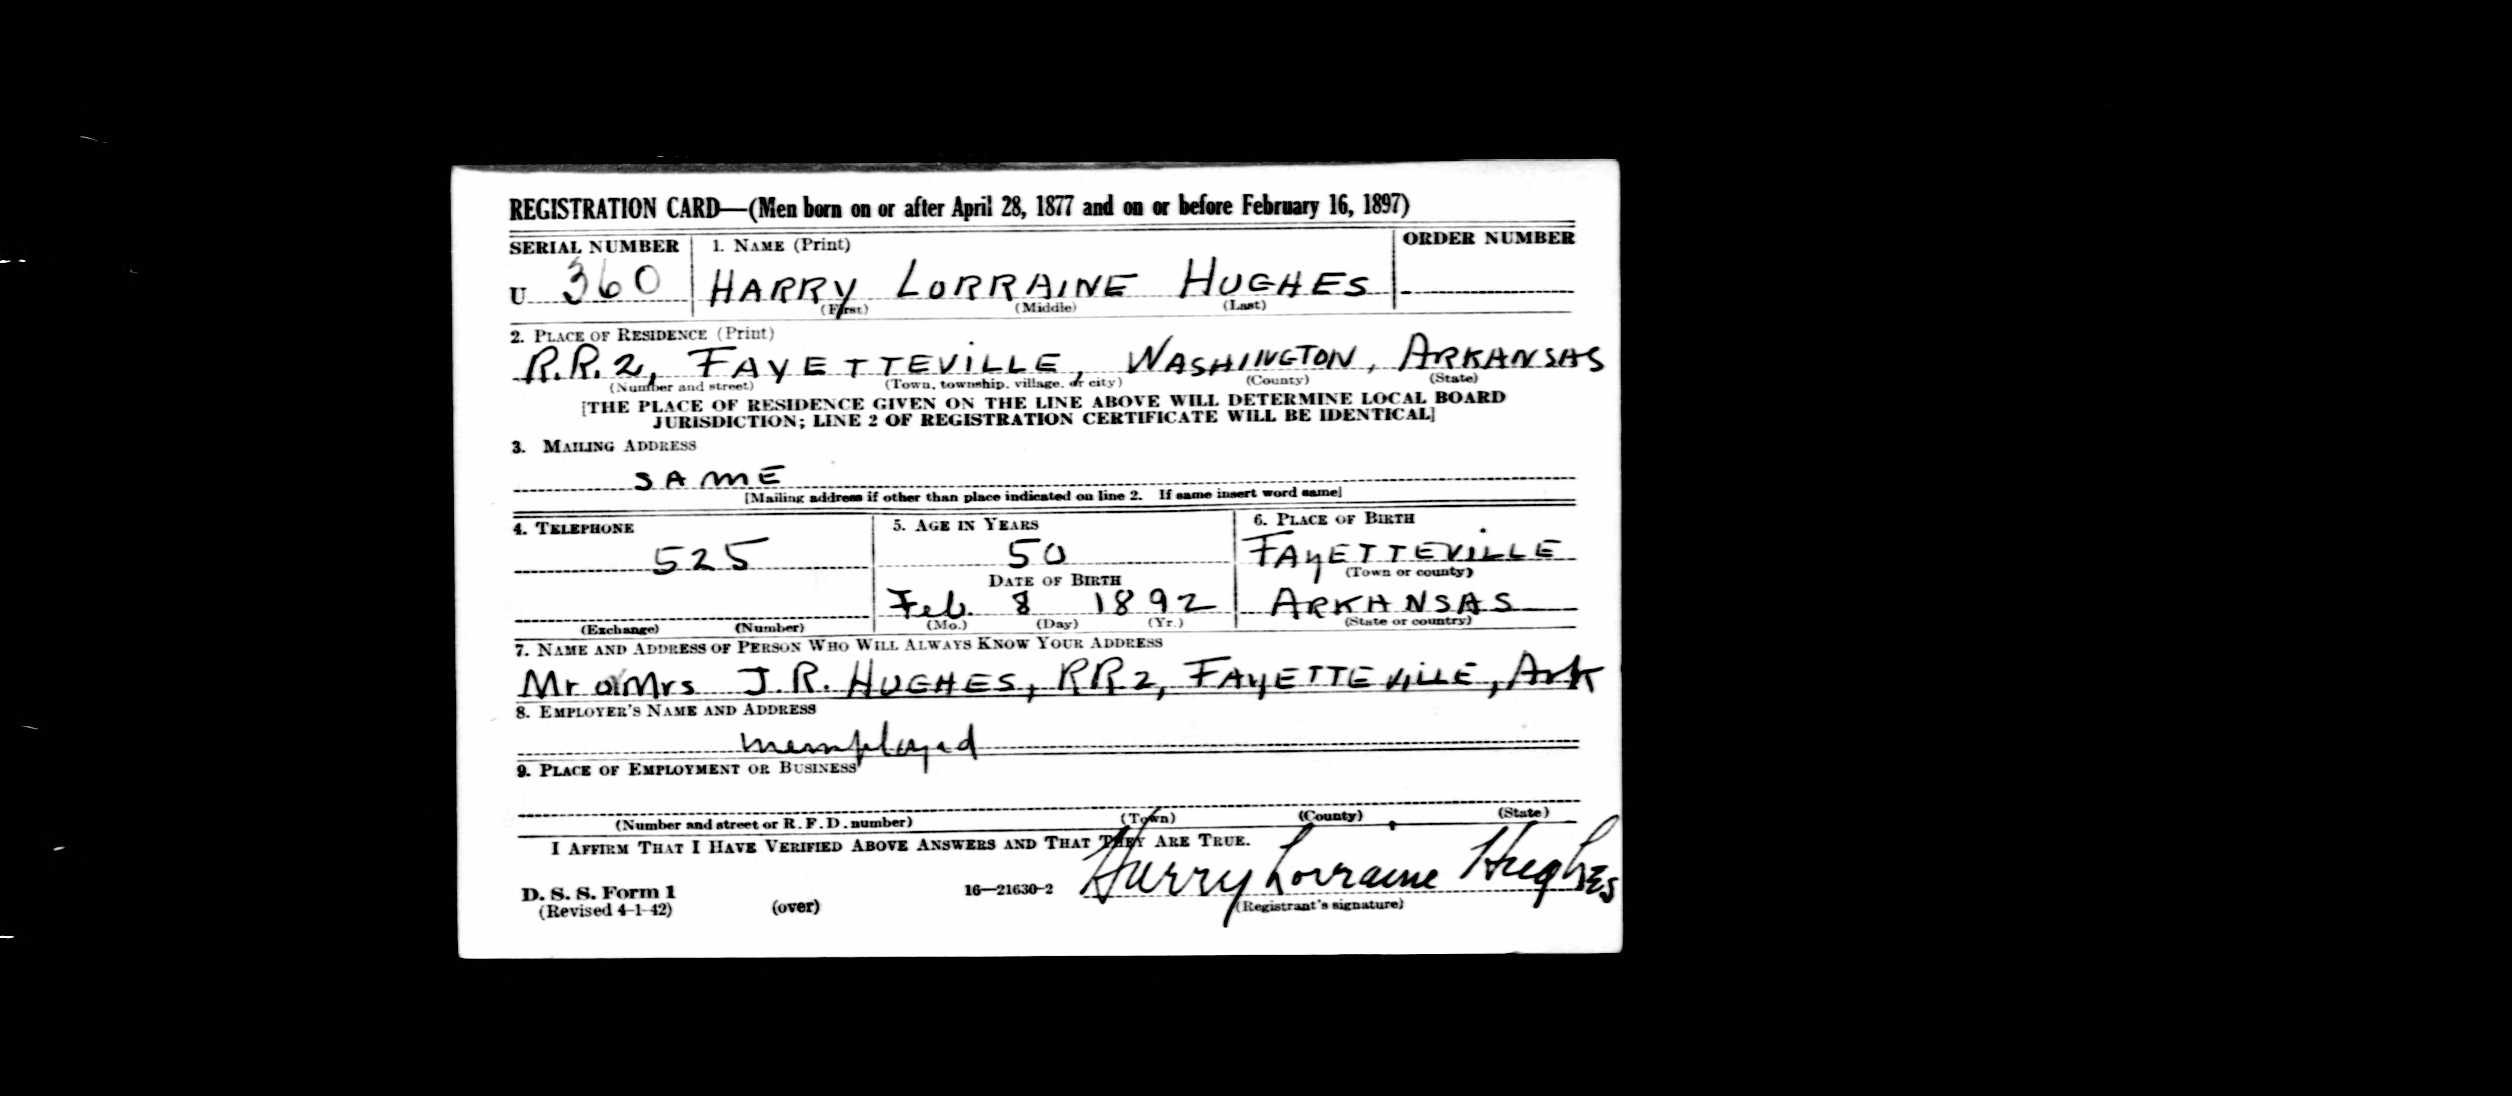 REGISTRATION CARD—(Men born on or after April 28, 1877 and on or before February 16, 1897)
SERIAL NUMBER 1. NAME (Print) ORDER NUMBER
U 360 HARRY LORRAINE HUGHES
(First) (Middle) (Last)
2. PLACE OF RESIDENCE (Print)
R.R. 2, FAYETTEVILLE, WASHINGTON, ARKANSAS
(Number and street) (Town, township, village, or city) (County) (State)
[THE PLACE OF RESIDENCE GIVEN ON THE LINE ABOVE WILL DETERMINE LOCAL BOARD
JURISDICTION; LINE 2 OF REGISTRATION CERTIFICATE WILL BE IDENTICAL]
3. MAILING ADDRESS
SAME
[Mailing address if other than place indicated on line 2. If same insert word same]
4. TELEPHONE 5. AGE IN YEARS 6. PLACE OF BIRTH
525 50 FAYETTEVILLE
(Town or county)
DATE OF BIRTH
Feb. 8 1892 ARKANSAS
(Exchange) (Number) (Mo.) (Day) (Yr.) (State or country)
7. NAME AND ADDRESS OF PERSON WHO WILL ALWAYS KNOW YOUR ADDRESS
Mr or Mrs J. R. HUGHES, RR 2, FAYETTEVILLE, Ark
8. EMPLOYER'S NAME AND ADDRESS
unemployed
9. PLACE OF EMPLOYMENT OR BUSINESS
(Number and street or R. F. D. number) (Town) (County) (State)
I AFFIRM THAT I HAVE VERIFIED ABOVE ANSWERS AND THAT THEY ARE TRUE.
Harry Lorraine Hughes
D. S. S. Form 1 16—21630-2
(Revised 4-1-42) (over) (Registrant's signature)